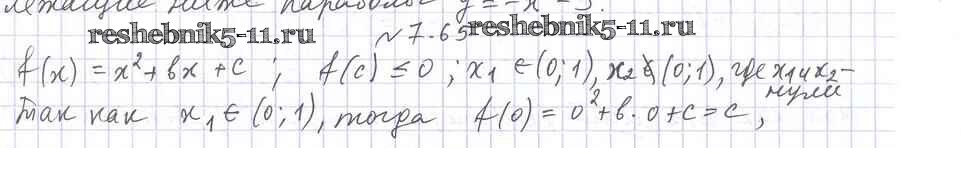 лежащие ниже параболы y = -x - 5.
reshebnik5-11.ru
№ 7.65
reshebnik5-11.ru
f(x) = x² + bx + c ; f(c) ≤ 0 ; x₁ ∈ (0; 1), x₂ ∉ (0; 1), где x₁ и x₂ -
нули
Так как x₁ ∈ (0; 1), тогда f(0) = 0² + b · 0 + c = c,